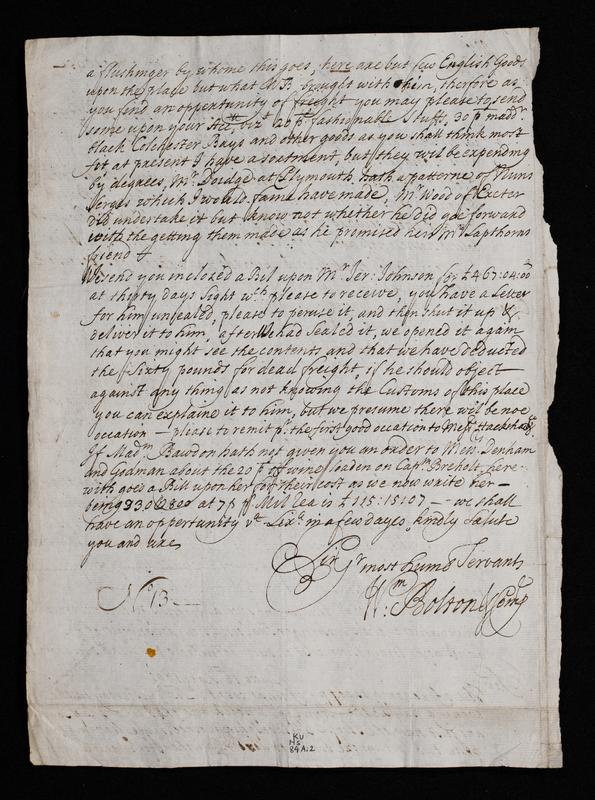 a flushinger by whome this goes, here are but few English Goods
upon the place but what Mr B: brought with him, therfore as
you find an oppertunity of freight you may please to send
some upon your Acct. vizt 20 ps fashionable Stuffs, 30 ps
black Colchester Bays and other goods as you shall think most
fit at present I have a sortment, but they wil be expending
by degrees, Mr. Doidge at Plymouth hath a patterne of
Serges which I would faine have made, Mr Wood of Exeter
did undertake it but know not whether he did goe forward
with the getting them made as he promised here Mr Lapthorns
friend
We send you inclosed a Bil upon Mr Jer: Johnson for £ 467:04:00
at thirty days Sight wch please to receive, you have a Letter
for him unsealed, please to peruse it, and then shut it up &
deliver it to him, after We had Sealed it, we opened it again
that you might see the contents, and that we have deducted
the Sixty pounds for dead freight, if he should object
against any thing as not knowing the Customs of this place
you can explaine it to him, but we presume there wil be noe
occation — please to remit pr. the first good occation to Messrs
If Madm Bawdon hath not given you an order to Messrs Denham
and Godman about the 20 p of wine loaden on Capn. Breholt, here
with goes a Bill upon her for their cost as we now write her —
being at 7s p Mil Rea is £ 115:15:07 — we shall
have an oppertunity in a few dayes, kindly Salute
you and are
Sir Yr most humb Servants
Wm. Bolton & Comp
No 13
KU
MS
84A:2